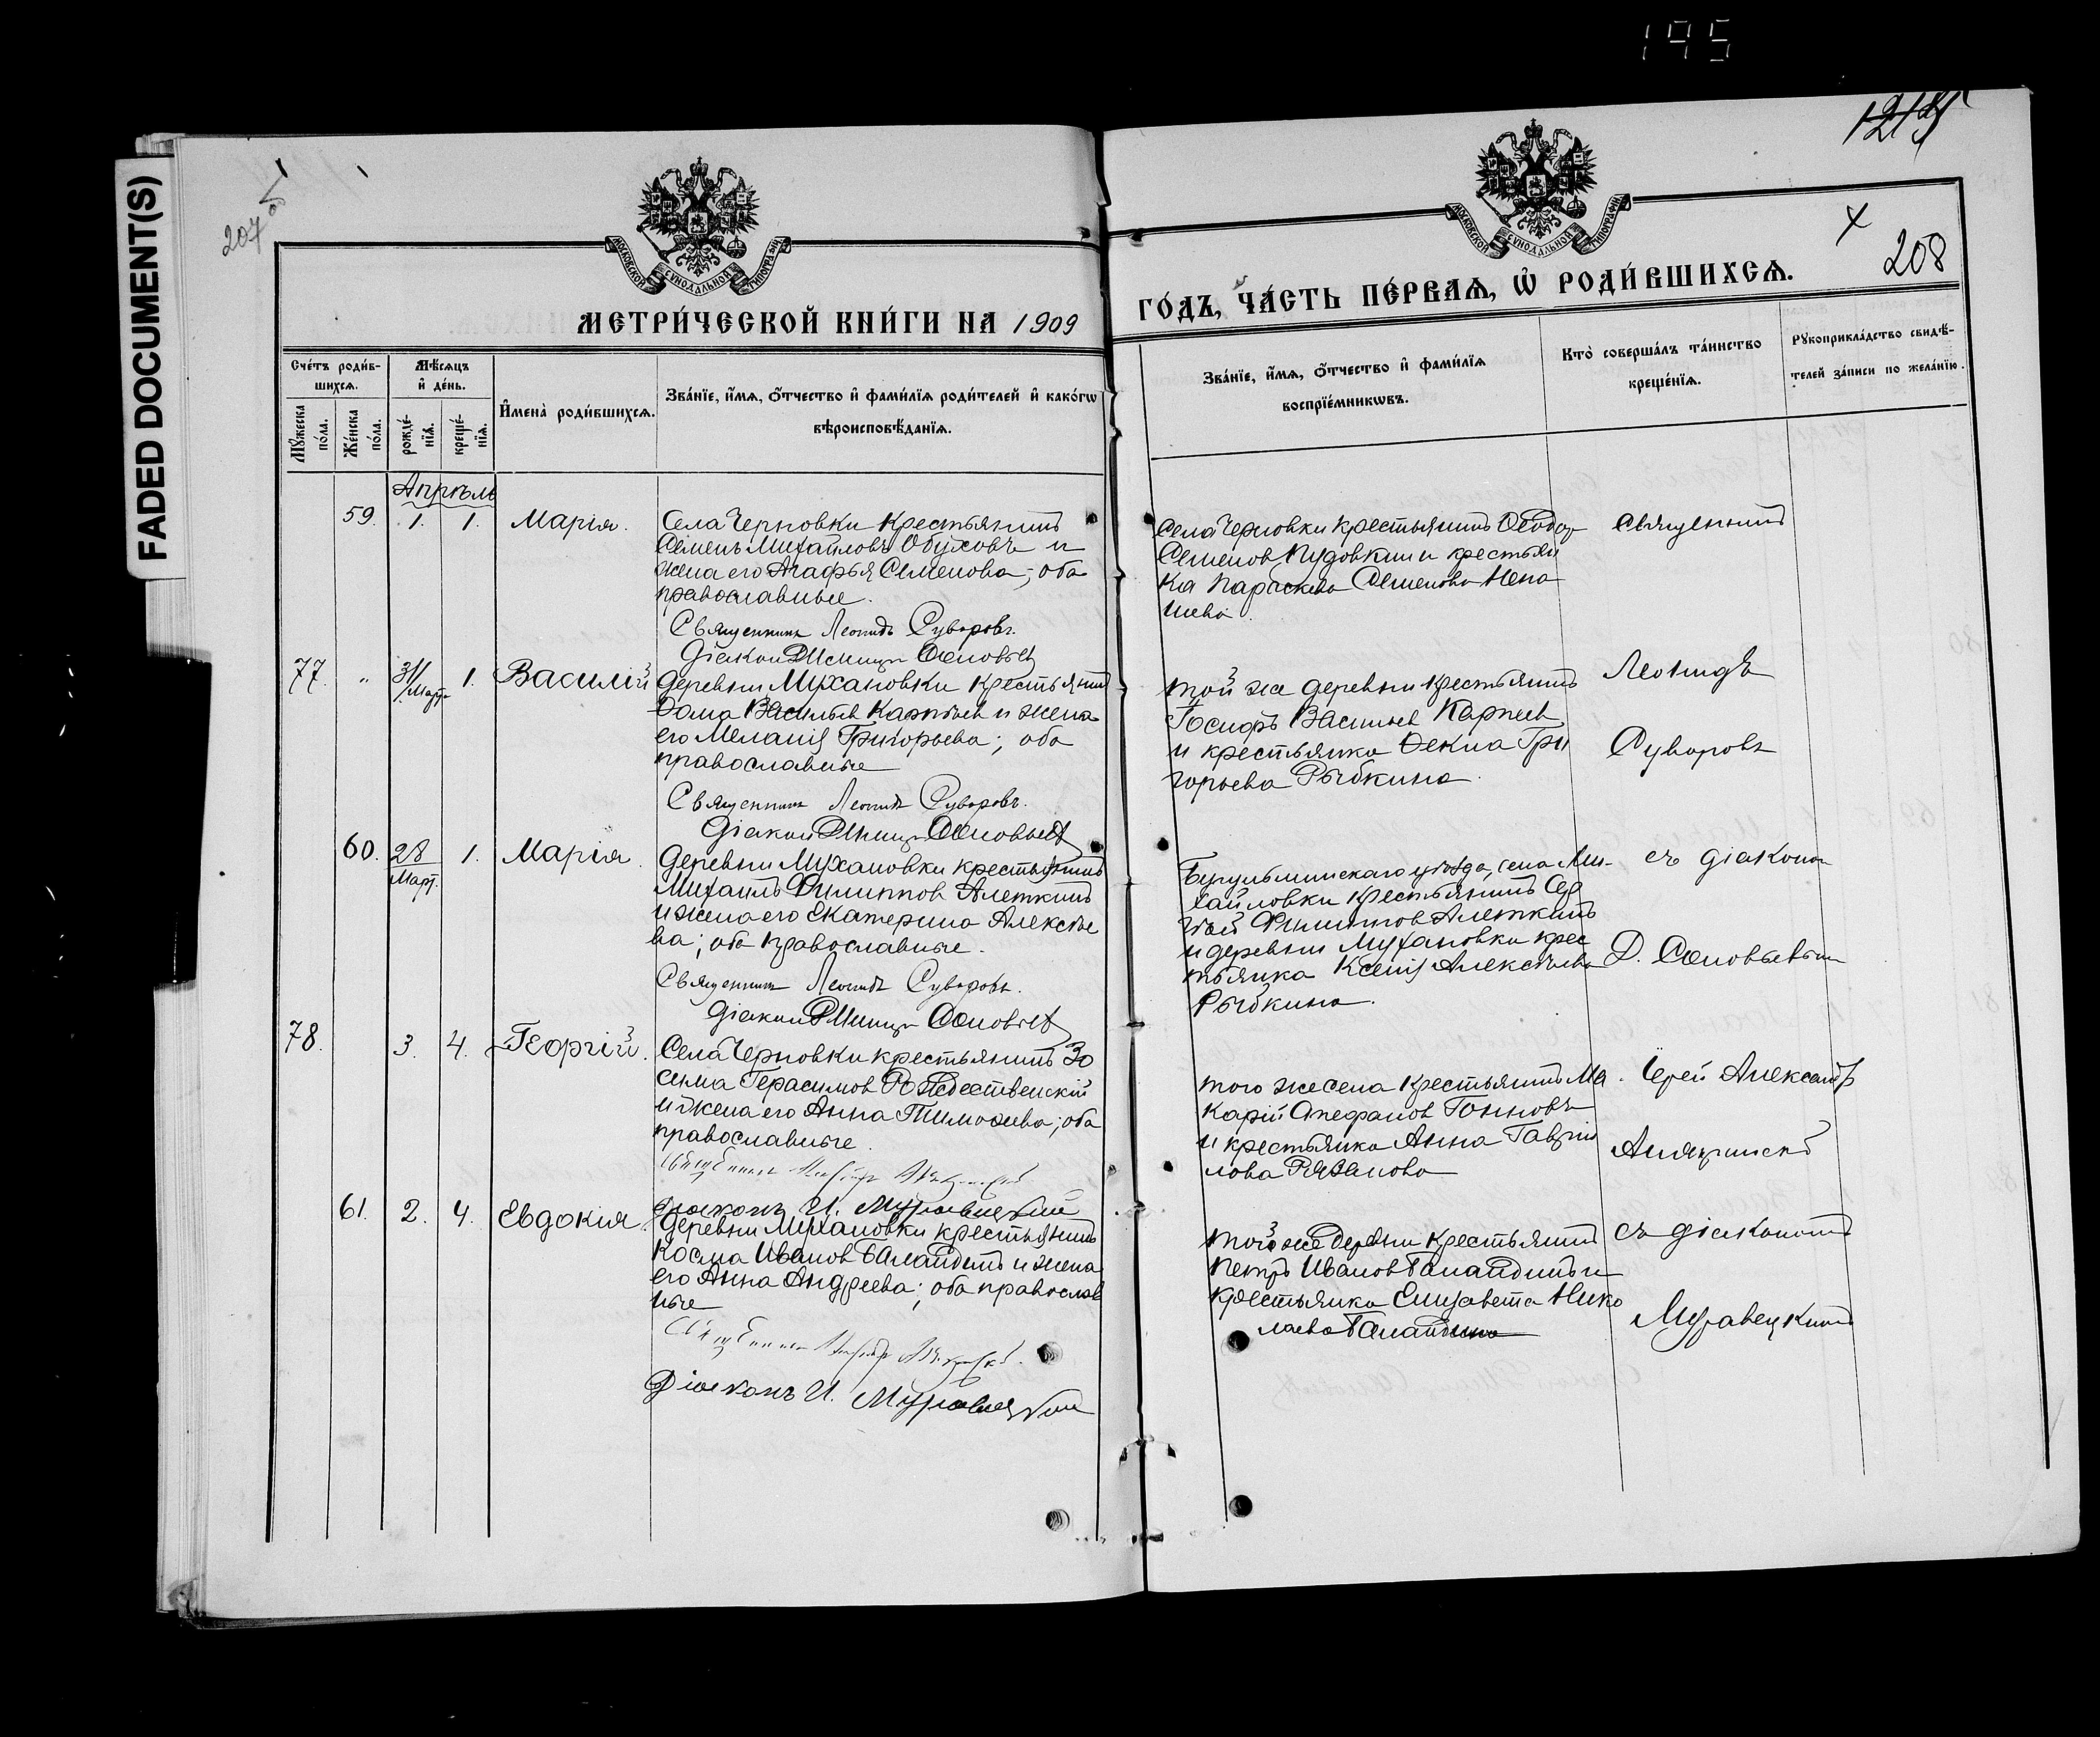 195
FADED DOCUMENT(S)
207
208
МОСКОВСКОЙ СѴНОДАЛЬНОЙ ТИПОГРАФІИ
МОСКОВСКОЙ СѴНОДАЛЬНОЙ ТИПОГРАФІИ
МЕТРИ́ЧЕСКОЙ КНИ́ГИ НА 1909
ГО́ДЪ, ЧА́СТЬ ПЕ́РВАѦ, Ѡ҆ РОДИ́ВШИХСѦ.
Сче́тъ роди́в-
шихсѧ.
Мѣ́сѧцъ
и҆ де́нь.
Мꙋ́жеска
по́ла.
Же́нска
по́ла.
рожде́-
нїѧ.
креще́-
нїѧ.
И҆мена̀ роди́вшихсѧ.
Зва́нїе, и҆́мѧ, ѻ҆́тчество и҆ фами́лїѧ роди́телей и҆ како́гѡ
вѣроисповѣ́данїѧ.
Зва́нїе, и҆́мѧ, ѻ҆́тчество и҆ фами́лїѧ
воспрїе́мникѡвъ.
Кто̀ соверша́лъ та́инство
креще́нїѧ.
Рꙋкоприкла́дство свидѣ́-
телей за́писи по жела́нїю.
Апрѣль
59. 1. 1. Марія.
Села Черновки крестьянинъ
Семенъ Михайловъ Обуховъ и
жена его Агафья Семенова; оба
православные.
Священникъ Леонидъ Суворовъ.
Діаконъ Соловьев
Села Черновки крестьянинъ Ѳеодор
Семенов Пудовкин и крестьян
ка Параскева Семенова Нена
шева.
Священникъ
77. " 31/Март 1. Василій
Деревни Мухановки крестьянин
Ѳома Васильев Карпеев и жена
его Меланія Григорьева; оба
православные
Священникъ Леонидъ Суворовъ.
Діаконъ Соловьев
той же деревни крестьянинъ
Іосифъ Васильев Карпеев
и крестьянка Ѳекла Гри
горьева Рыбкина.
Леонидъ
Суворовъ
60. 28 Март. 1. Марія.
Деревни Мухановки крестьянинъ
Михаилъ Филиппов Алеткинъ
и жена его Екатерина Алексѣе
ва; оба православные.
Священникъ Леонидъ Суворовъ.
Діаконъ Соловьев
Бугульминскаго уѣзда, села Ми-
хайловки крестьянинъ Сер
гѣй Филиппов Алеткинъ
и деревни Мухановки крес
тьянка Ксенія Алексѣева
Рыбкина.
съ діаконом
Д. Соловьевым
78. 3. 4. Георгій.
Села Черновки крестьянинъ Зо
сима Герасимов Рождественскій
и жена его Анна Тимоѳеева; оба
православные.
Діаконъ И. Муравецкий
того же села крестьянинъ Ма
карій Стефанов
и крестьянка Анна Гаврии
лова Рязанова
Іерей Александр
61. 2. 4. Евдокія.
Деревни Мухановки крестьянинъ
Косма Иванов Баландинъ и жена
его Анна Андреева; оба православ
ные
Діаконъ И. Муравецкий
той же деревни крестьянинъ
Петръ Иванов Баландинъ и
крестьянка Елизавета Нико
лаева Баландина
съ діакономъ
Муравецкимъ